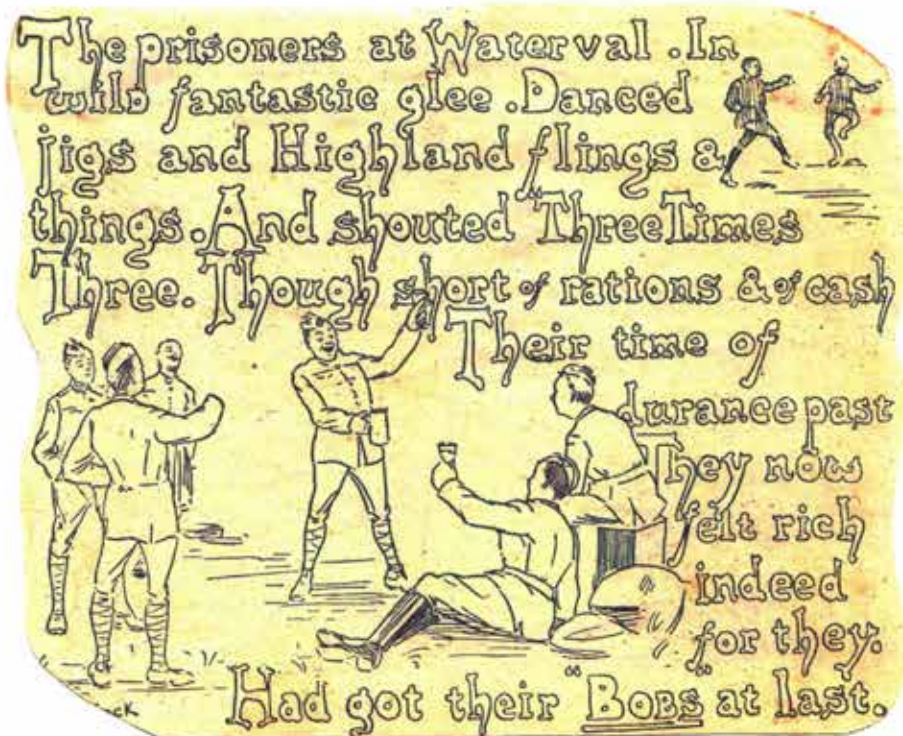 The prisoners at Waterval . In
wild fantastic glee . Danced
jigs and Highland flings &
things . And shouted "Three Times
Three." Though short of rations & of cash
Their time of
durance past
They now
felt rich
indeed
for they.
Had got their "BOBS" at last.
CK